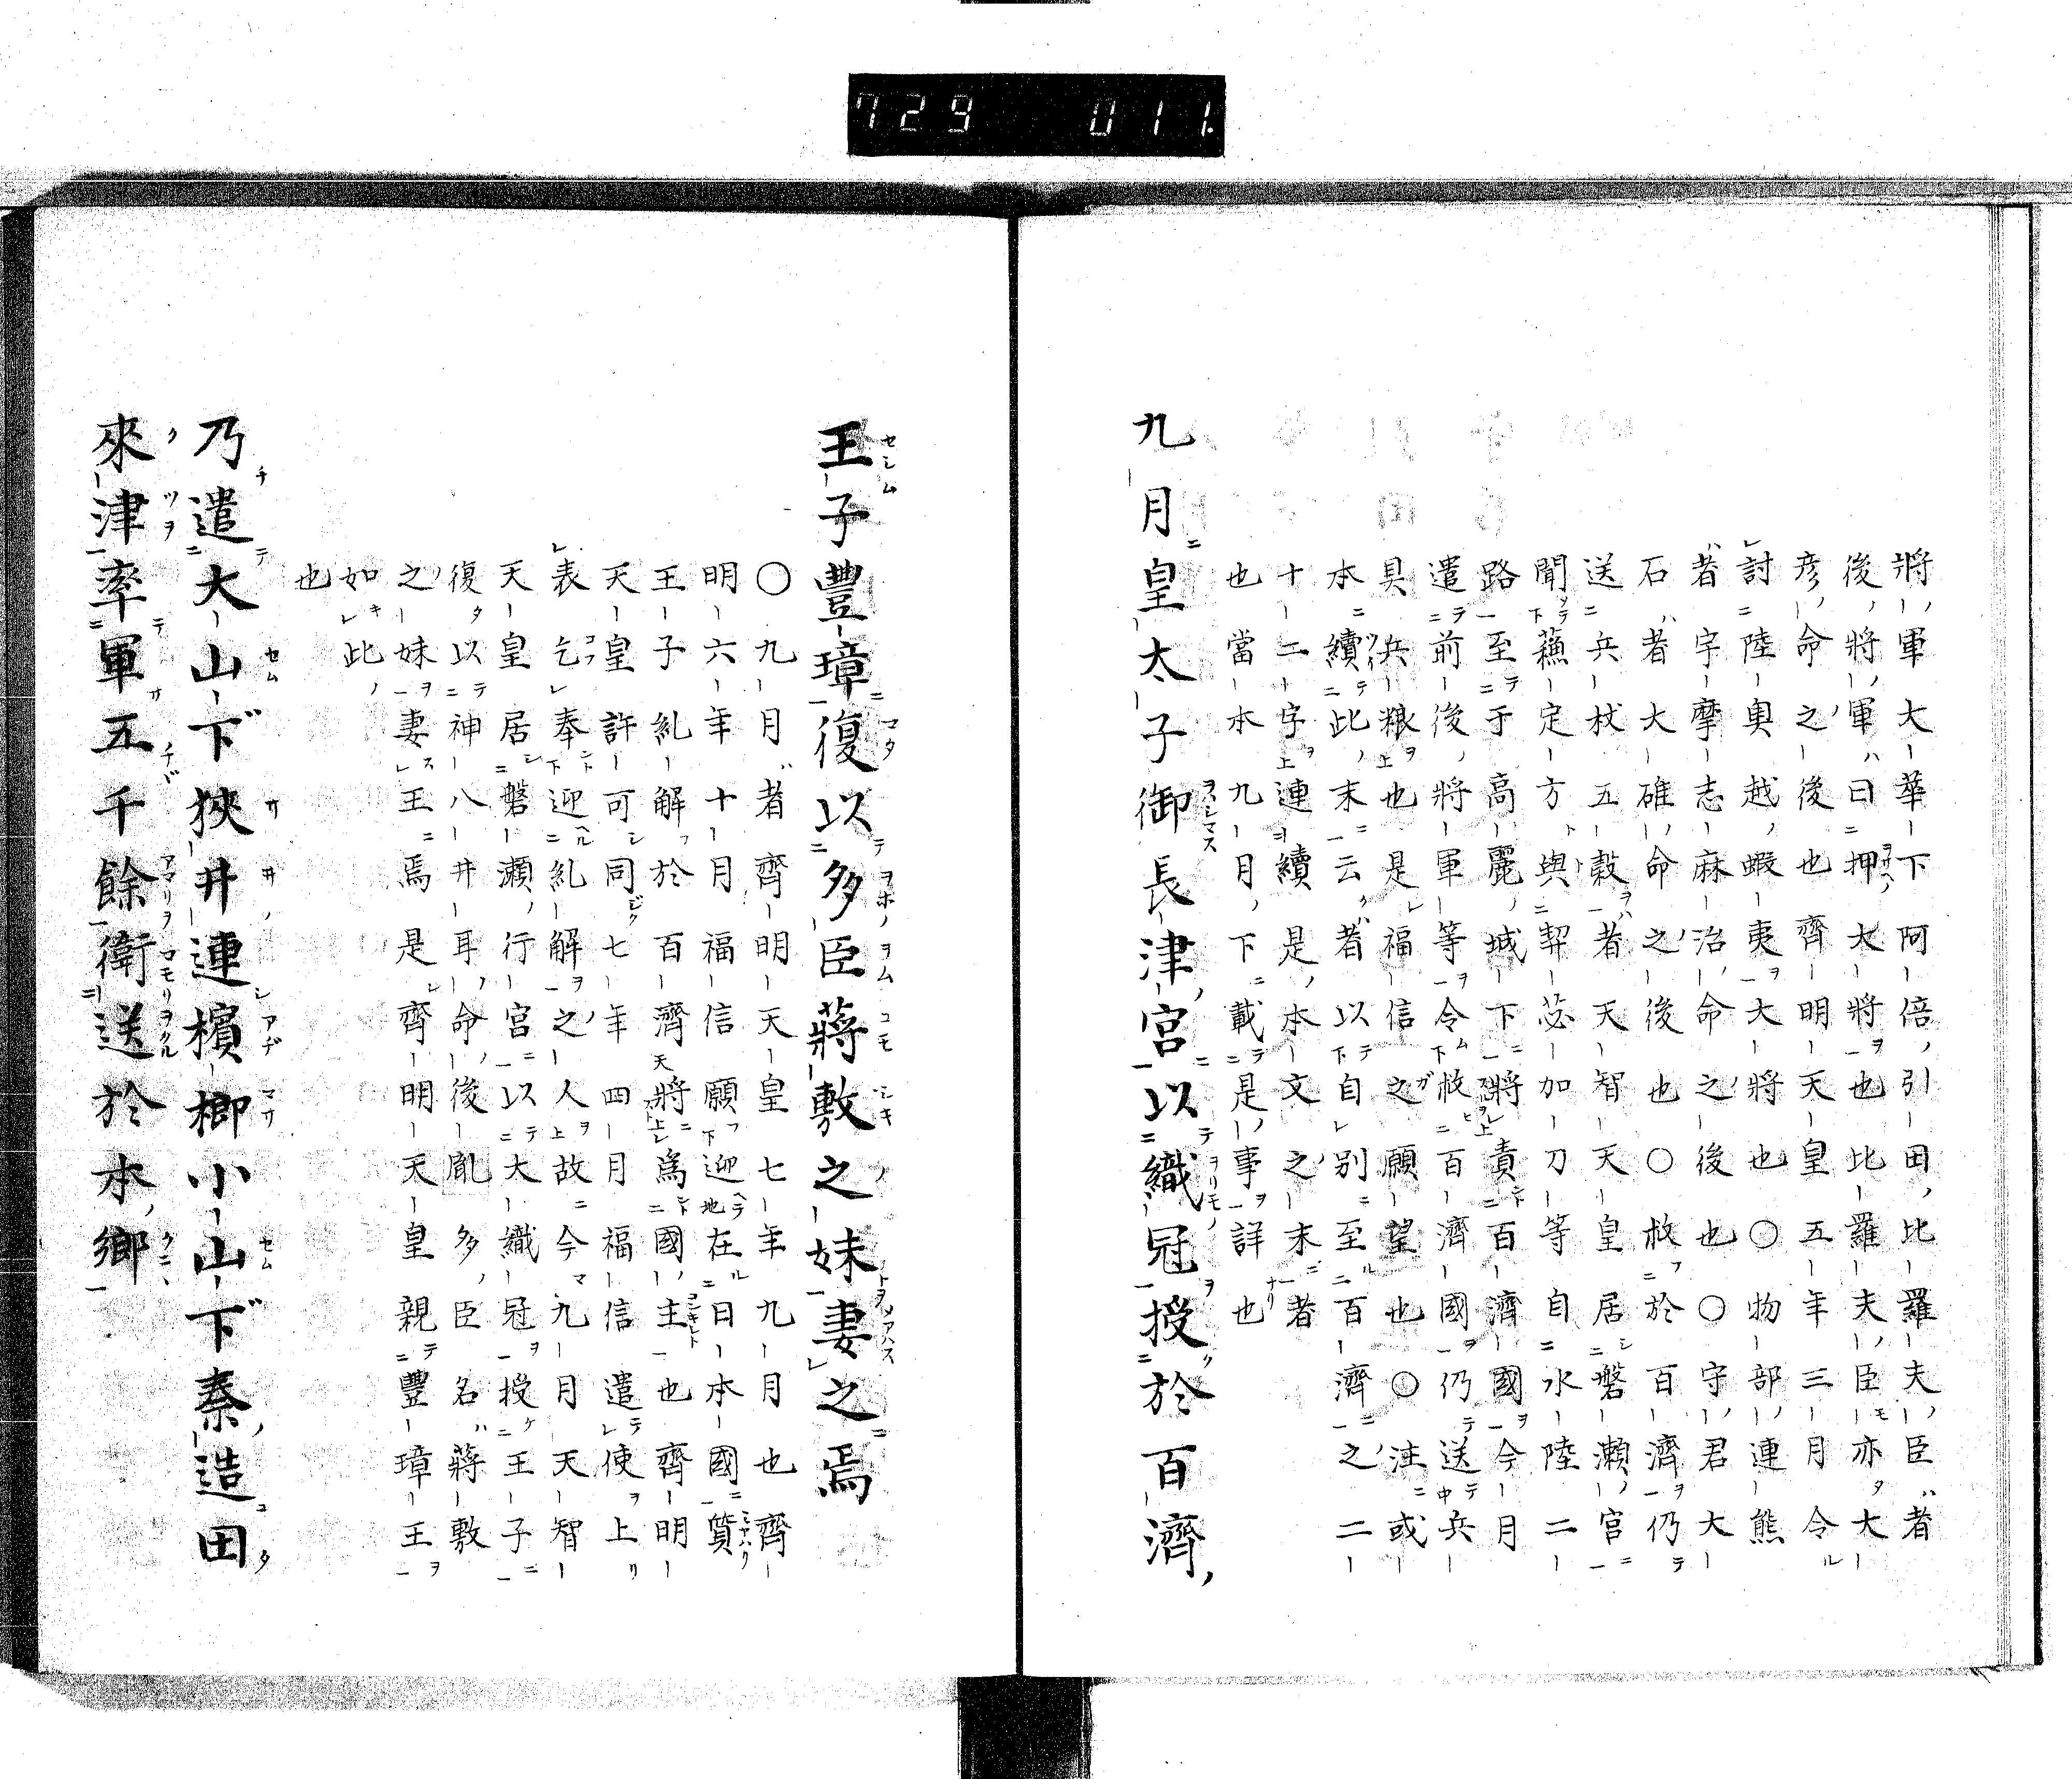 729 011.
將軍大華下阿倍引田比羅夫臣者
後將軍曰押大將也比羅夫臣亦大
彦命之後也齊明天皇五年三月令
討陸奥越蝦夷大將也○物部連熊
者宇摩志麻治命之後也○守君大
石者大碓命之後也○救於百濟仍
送兵杖五穀者天智天皇居磐瀬宮
聞蘓定方與契苾加刀等自水陸二
路至于高麗城下將責百濟國今月
遣前後將軍等令救百濟國仍送兵
具兵粮也是福信之願望也○注或
本續此末云者以自别至百濟之二
十二字連續是本文之末者
也當本九月下載是事詳也
九月皇太子御長津宮以織冠授於百濟
王子豐璋復以多臣蔣敷之妹妻之焉
○九月者齊明天皇七年九月也齊
明六年十月福信願迎在日本國質
王子糺解於百濟將爲國主也齊明
天皇許可同七年四月福信遣使上
表乞奉迎糺解之人故今九月天智
天皇居磐瀬行宮以大織冠授王子
復以神八井耳命後胤多臣名蔣敷
之妹妻王焉是齊明天皇親豐璋王
如此
也
乃遣大山下狹井連檳榔小山下秦造田
來津率軍五千餘衛送於本郷